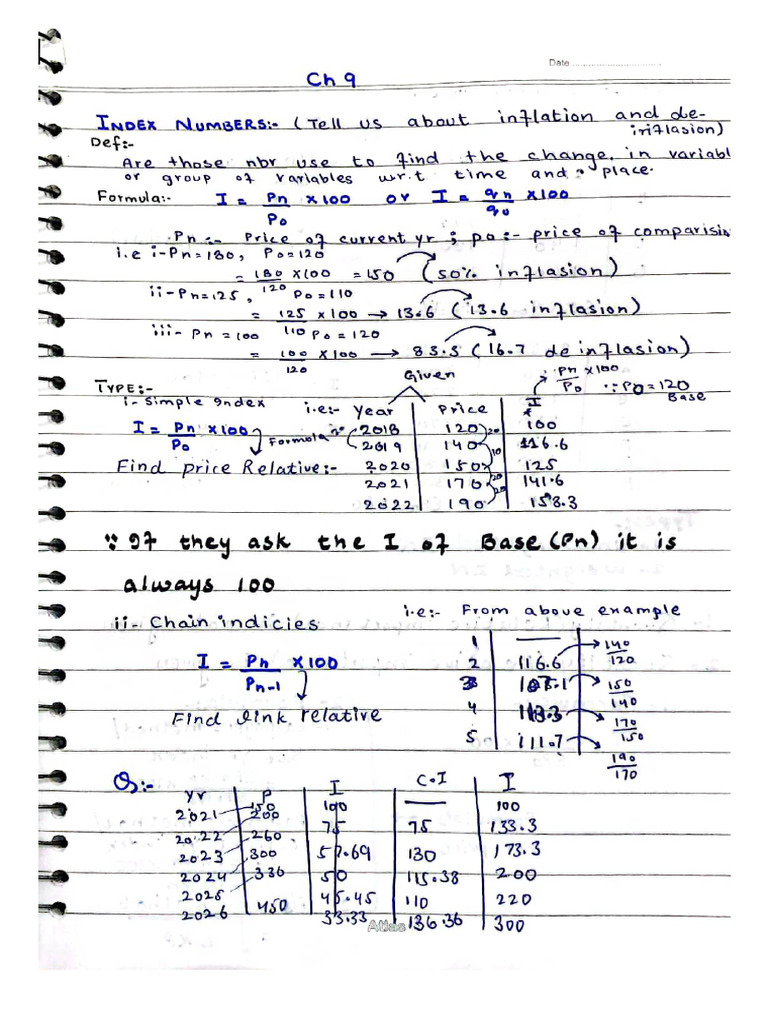 Date
Ch 9
INDEX NUMBERS:- (Tell us about inflation and de-
inflasion)
Def:-
Are those nbr use to find the change in variabl
or group of variables w.r.t time and place.
Formula:- I = Pn/Po x100 or I = qn/qo x100
Pn:- Price of current yr ; po:- price of comparisin
i.e i-Pn=180, Po=120
= 180/120 x100 = 150 (50% inflasion)
ii-Pn=125, Po=110
= 125/110 x 100 → 13.6 (13.6 inflasion)
iii- Pn=100 Po=120
= 100/120 x100 → 83.3 (16.7 deinflasion)
Given
Pn/Po x100 ∵Po=120 Base
TYPE:-
i- Simple Index i.e:- Year Price I
I = Pn/Po x100 Formula 2018 120 20 100
2019 140 10 116.6
Find price Relative:- 2020 150 20 125
2021 170 20 141.6
2022 190 158.3
∵ If they ask the I of Base(Pn) it is
always 100
ii- Chain indicies i.e:- From above example
I = Pn/Pn-1 x100
Find link relative
1 —
2 116.6 → 140/120
3 107.1 → 150/140
4 113.3 → 170/150
5 111.7 → 190/170
Q:-
yr P I C.I I
2021 150 100 — 100
2022 200 75 75 133.3
2023 260 57.69 130 173.3
2024 300 50 115.38 200
2025 330 45.45 110 220
2026 450 33.33 136.36 300
Atlas